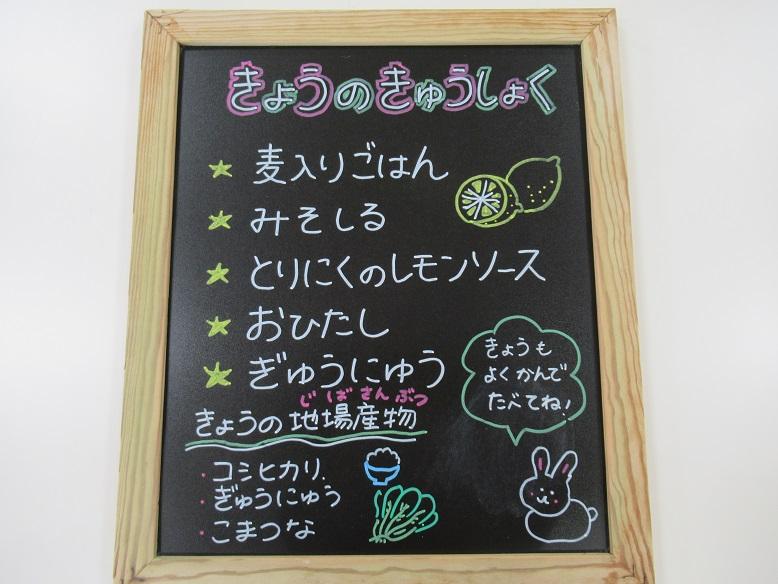 きょうのきゅうしょく
麦入りごはん
みそしる
とりにくのレモンソース
おひたし
ぎゅうにゅう
じばさんぶつ
きょうの地場産物
・コシヒカリ.
・ぎゅうにゅう
・こまつな
きょうも
よくかんで
たべてね!